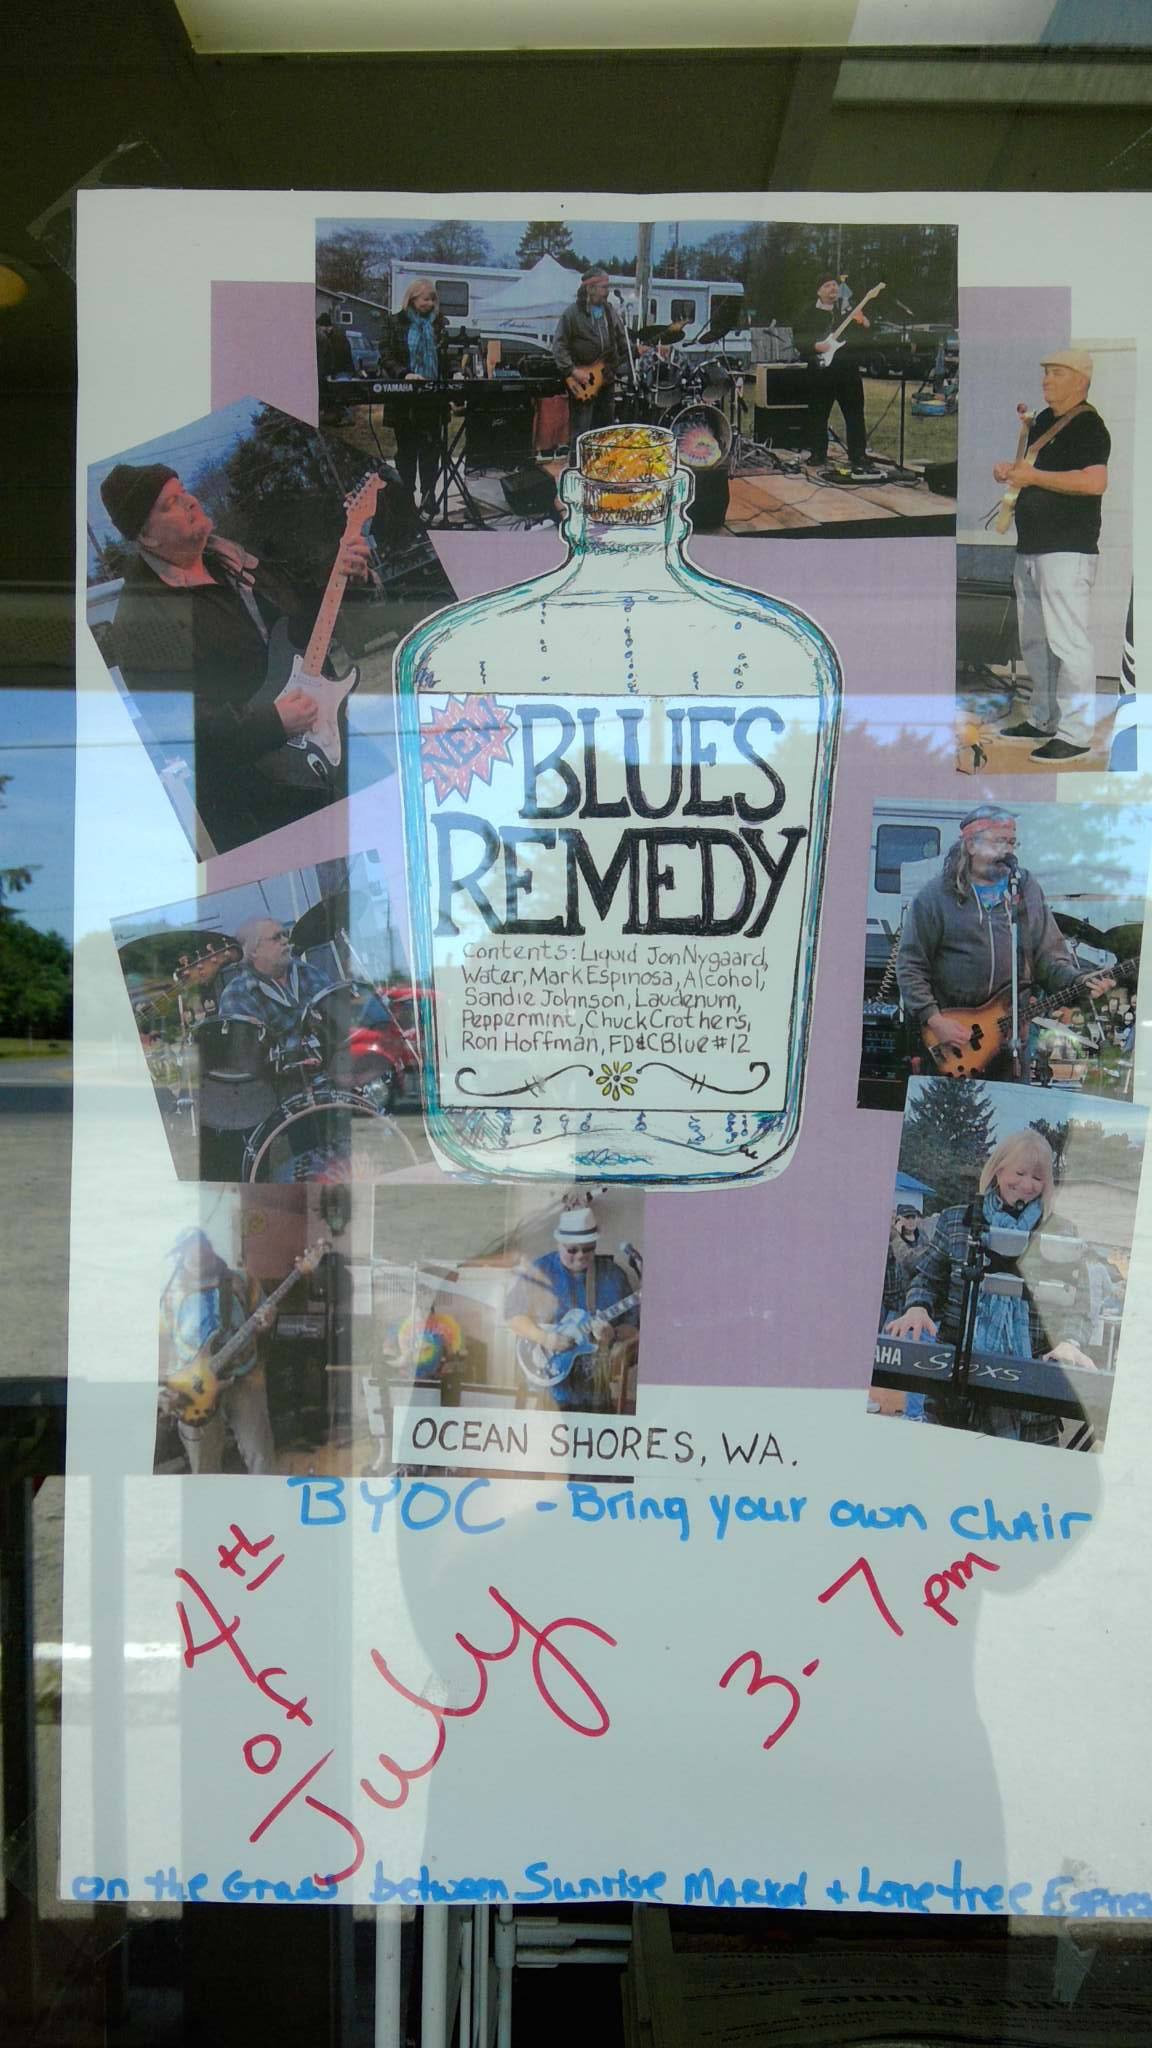 YAMAHA S90XS
NEW
BLUES
REMEDY
Contents: Liquid Jon Nygaard,
Water, Mark Espinosa, Alcohol,
Sandie Johnson, Laudenum,
Peppermint, Chuck Crothers,
Ron Hoffman, FD&C Blue #12
AHA S90XS
OCEAN SHORES, WA.
BYOC - Bring your own chair
4th of July
3-7 pm
on the Grass between Sunrise Market + Lonetree Espres